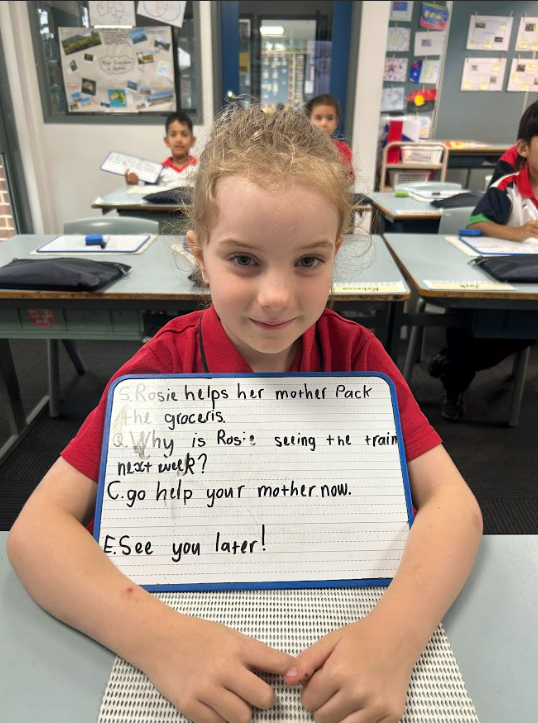 S. Rosie helps her mother Pack
the groceris.
Q. Why is Rosie seeing the train
next week?
C. go help your mother now.
E. See you later!